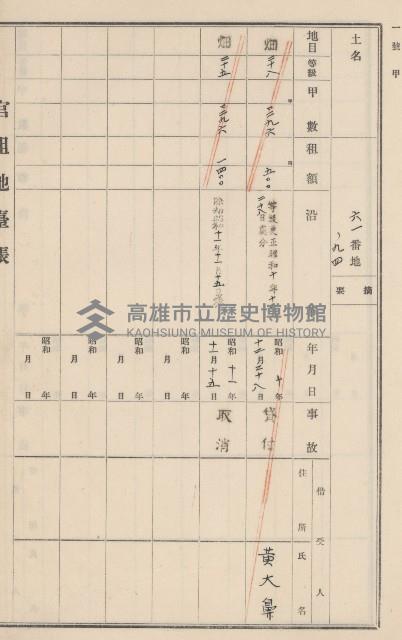 一號甲
土名
六一番地
、九四
摘要
地目
等級
甲數
租額
沿
年月日
事故
借受人
住所
氏名
畑
二十八
五〇〇
等級更正昭和十年十
二十八日處分
昭和十年
十二月二十八日
貸付
黃大鼻
畑
二十五
昭和十一年
十一月十五日
取消
昭和年
月日
昭和年
月日
昭和年
月日
昭和年
月日
官租地臺帳
高雄市立歷史博物館
KAOHSIUNG MUSEUM OF HISTORY